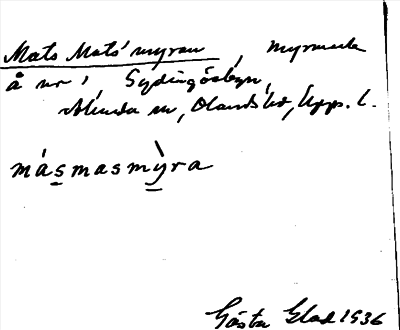 Mats Mats'myran, myrmark
å nr 1, Sydingösbyn,
Almunda sn, Olands hd, Upps. l.
måsmasmỳra
Gösta Glad 1936